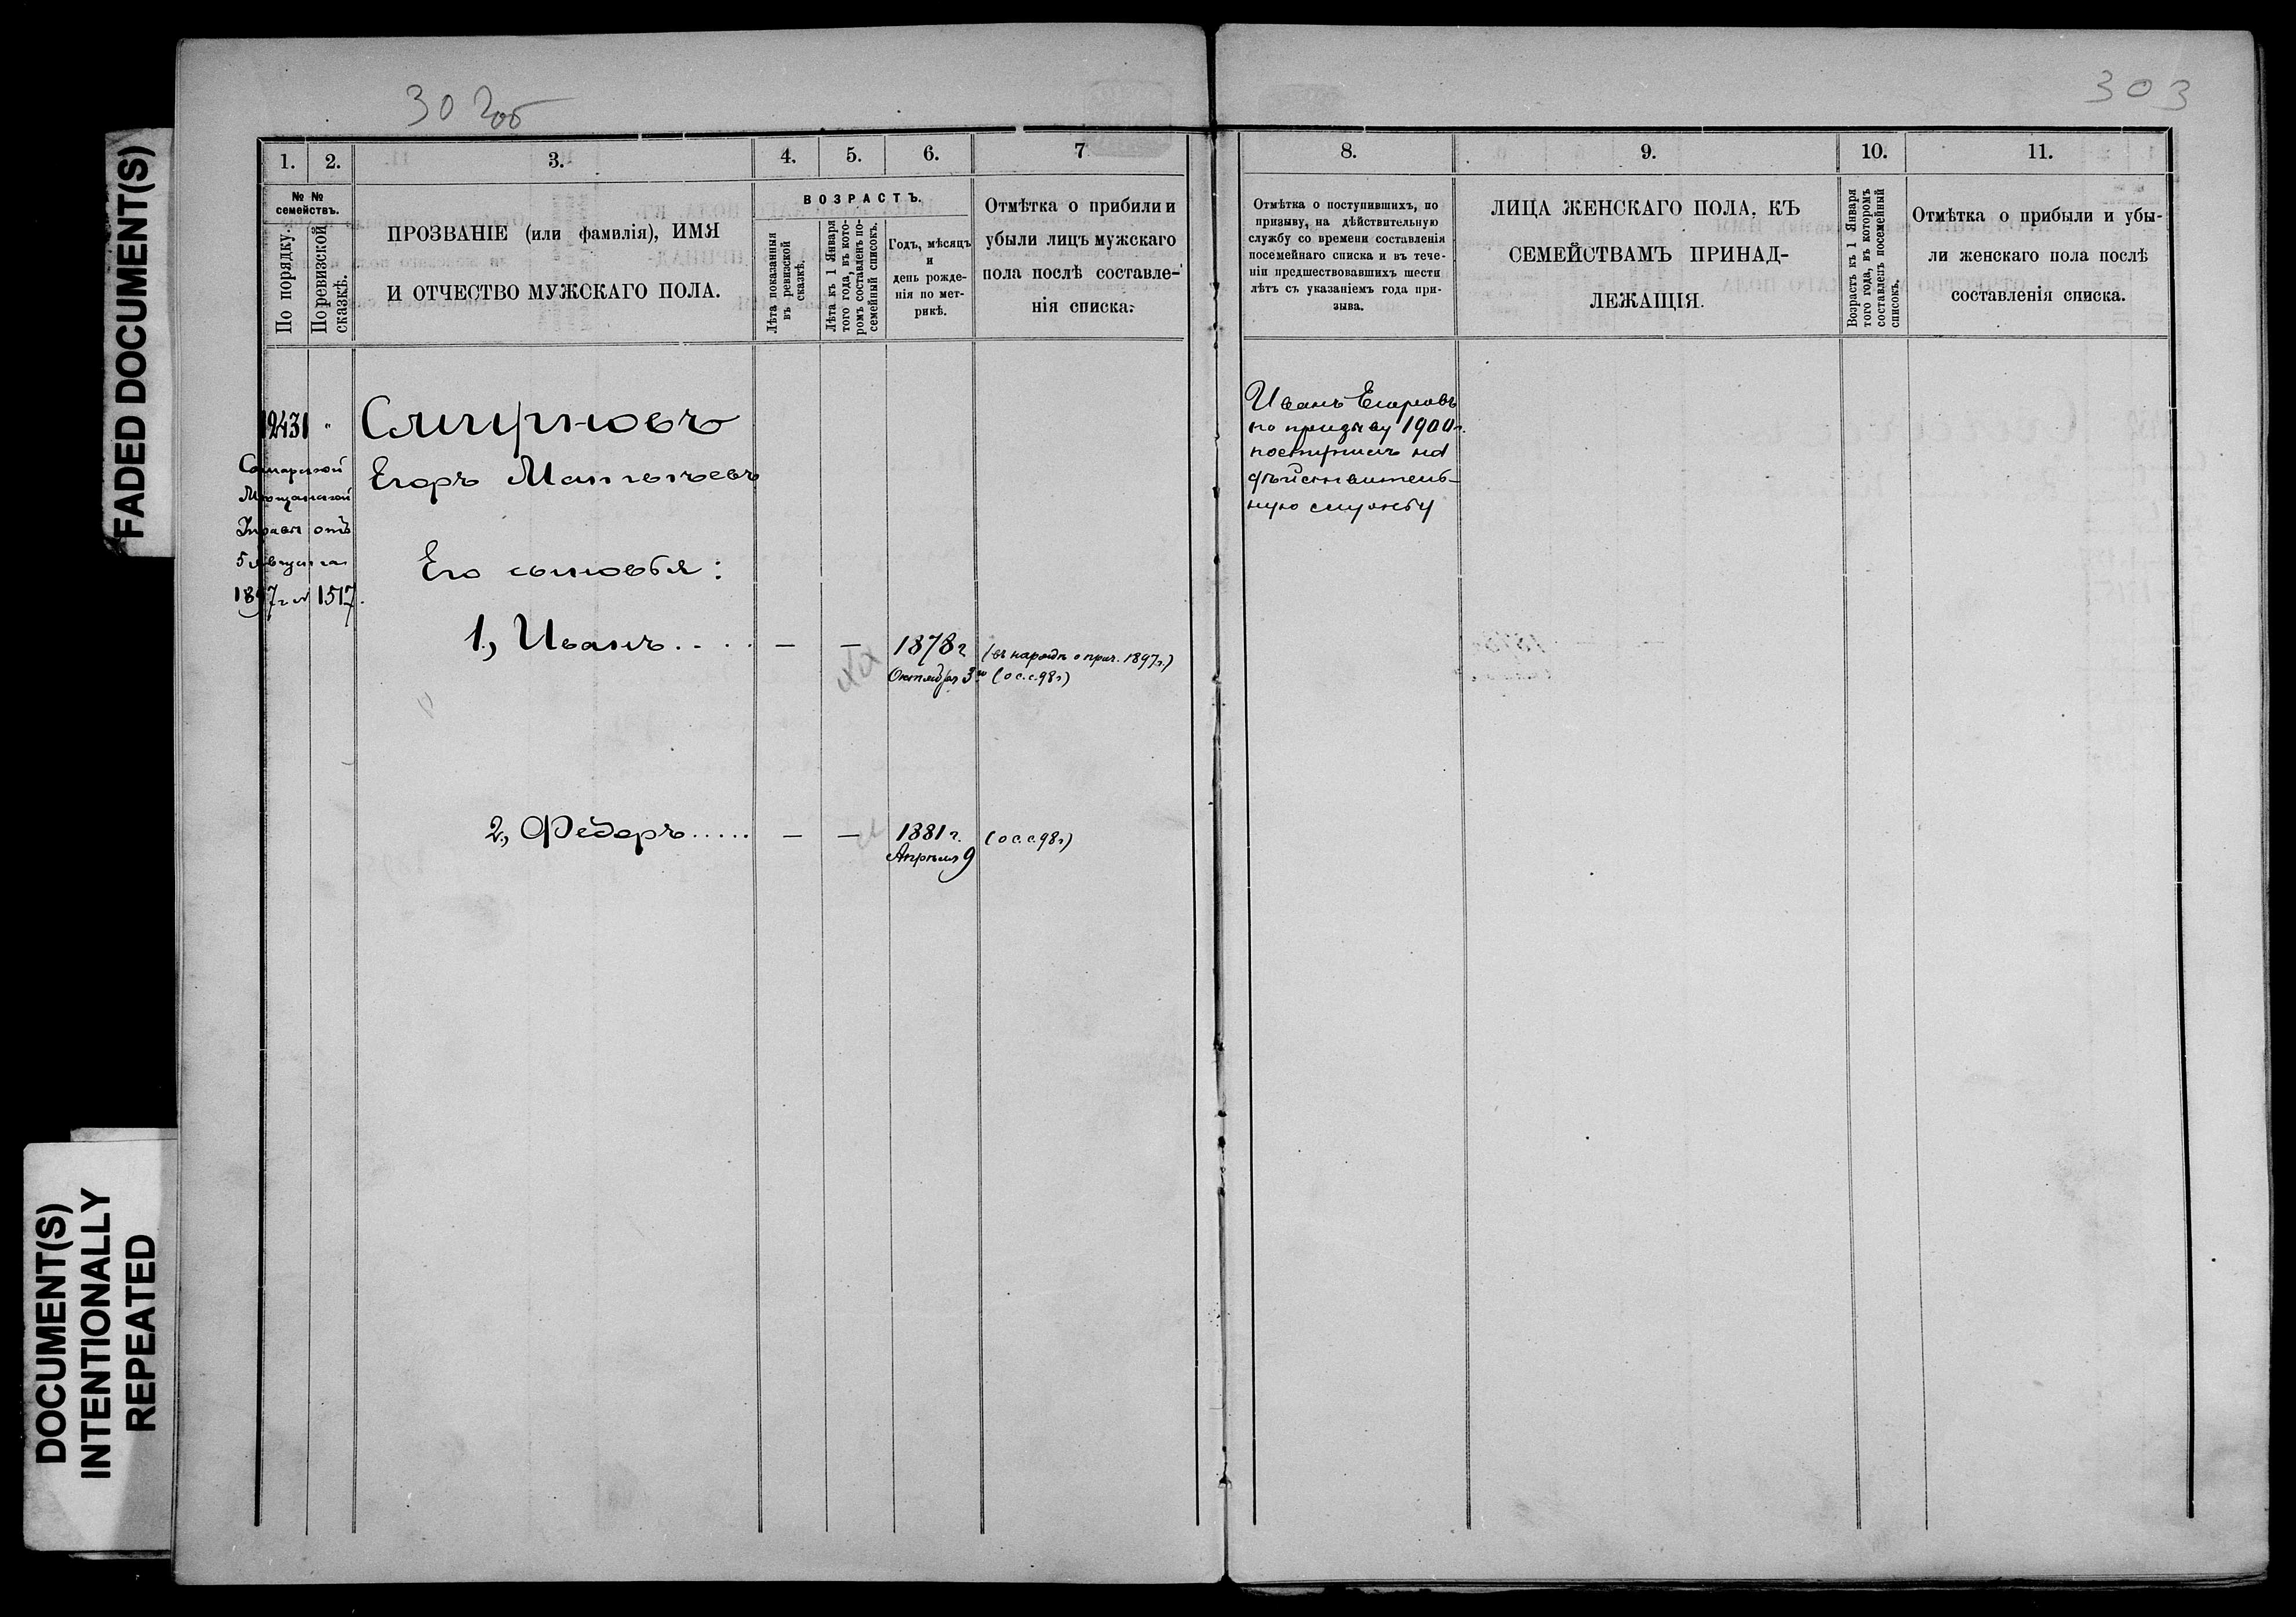 FADED DOCUMENT(S)
DOCUMENT(S)
INTENTIONALLY
REPEATED
302об
1.
2.
3.
4.
5.
6.
7
№ №
семействъ.
По порядку.
По ревизской
сказкѣ.
ПРОЗВАНІЕ (или фамилія), ИМЯ
И ОТЧЕСТВО МУЖСКАГО ПОЛА.
ВОЗРАСТЪ.
Лѣта показанныя
въ ревизской
сказкѣ.
Лѣта къ 1 Января
того года, въ кото-
ромъ составленъ по-
семейный списокъ.
Годъ, мѣсяцъ
и
день рожде-
нія по мет-
рикѣ.
Отмѣтка о прибили и
убыли лицъ мужскаго
пола послѣ составле-
нія списка.
12431 "
Самарской
Мѣщанской
Управы отъ
5 Августа
1897 г № 1517.
Смирновъ
Егоръ Матвѣевъ
Его сыновья:
1., Иванъ.... — — 1878 г
Октября 3го
(въ 1897г.)
(о с.с.98г)
2., Федоръ..... — — 1881 г.
Апрѣля 9
(о с.с.98г)
303
8.
9.
10.
11.
Отмѣтка о поступившихъ, по
призыву, на дѣйствительную
службу со времени составленія
посемейнаго списка и въ тече-
ніи предшествовавшихъ шести
лѣтъ съ указаніемъ года при-
зыва.
ЛИЦА ЖЕНСКАГО ПОЛА, КЪ
СЕМЕЙСТВАМЪ ПРИНАД-
ЛЕЖАЩІЯ.
Возрастъ къ 1 Января
того года, въ которомъ
составленъ посемейный
списокъ.
Отмѣтка о прибыли и убы-
ли женскаго пола послѣ
составленія списка.
Иванъ Егоровъ
по призыву 1900г.
поступилъ на
дѣйствитель-
ную службу